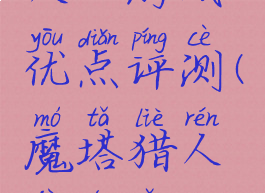 yōu diǎn píng cè
优点评测(
mó tǎ liè rén
魔塔猎人